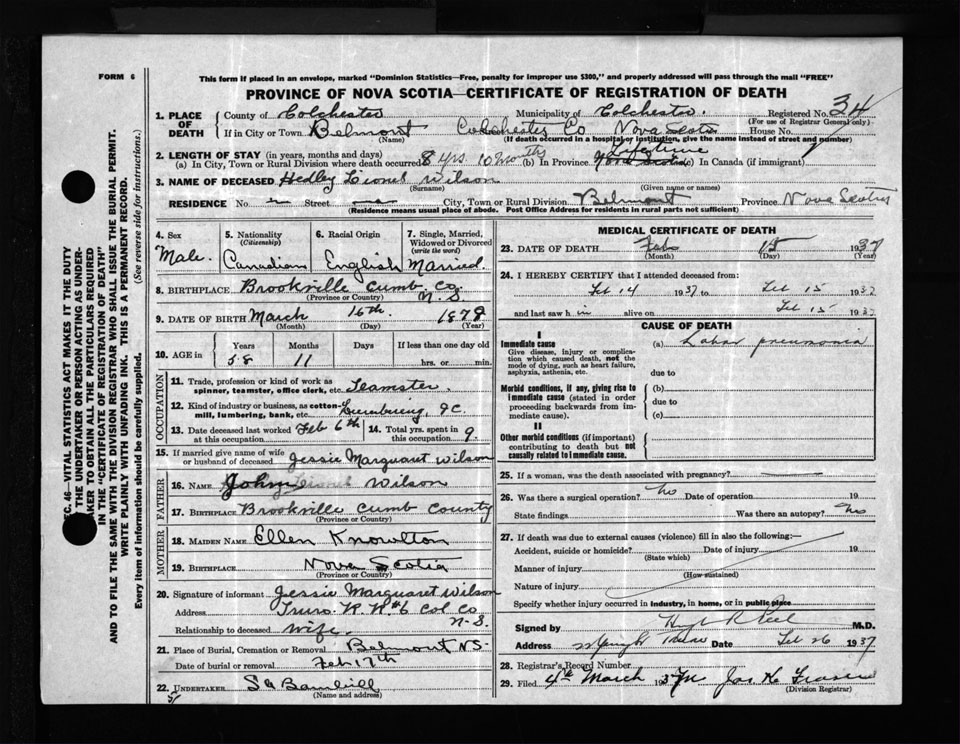 FORM 6
This form if placed in an envelope, marked "Dominion Statistics—Free, penalty for improper use $300," and properly addressed will pass through the mail "FREE"
PROVINCE OF NOVA SCOTIA—CERTIFICATE OF REGISTRATION OF DEATH
1. PLACE OF DEATH County of Colchester Municipality of Colchester. Registered No. 34
(For use of Registrar General only)
If in City or Town Belmont Colchester Co Nova Scotia House No.
(Name) (If death occurred in a hospital or institution, give the name instead of street and number)
2. LENGTH OF STAY (in years, months and days)
(a) In City, Town or Rural Division where death occurred 8 yrs 10 months (b) In Province Lifetime Nova Scotia (c) In Canada (if immigrant)
3. NAME OF DECEASED Hedley Lionel Wilson
(Surname) (Given name or names)
RESIDENCE No. Street City, Town or Rural Division Belmont Province Nova Scotia
(Residence means usual place of abode. Post Office Address for residents in rural parts not sufficient)
4. Sex Male.
5. Nationality (Citizenship) Canadian
6. Racial Origin English
7. Single, Married, Widowed or Divorced (write the word) Married.
8. BIRTHPLACE Brookville Cumb. Co. N.S.
(Province or Country)
9. DATE OF BIRTH March 16th. 1878
(Month) (Day) (Year)
10. AGE in Years Months Days If less than one day old
58 11 hrs. or min.
OCCUPATION
11. Trade, profession or kind of work as spinner, teamster, office clerk, etc. Teamster.
12. Kind of industry or business, as cotton-mill, lumbering, bank, etc. Lumbering
13. Date deceased last worked at this occupation Feb 6th
14. Total yrs. spent in this occupation 9.
15. If married give name of wife or husband of deceased Jessie Marguaret Wilson
FATHER
16. NAME John Wilson
17. BIRTHPLACE Brookville Cumb County
(Province or Country)
MOTHER
18. MAIDEN NAME Ellen Knowlton
19. BIRTHPLACE Nova Scotia
(Province or Country)
20. Signature of informant Jessie Marguaret Wilson
Address Truro R.R #6 Col Co N.S.
Relationship to deceased Wife.
21. Place of Burial, Cremation or Removal Belmont N.S.
Date of burial or removal Feb 17th
22. UNDERTAKER
(Name and address)
MEDICAL CERTIFICATE OF DEATH
23. DATE OF DEATH Feb 15 1937
(Month) (Day) (Year)
24. I HEREBY CERTIFY that I attended deceased from:
Feb 14 1937 to Feb 15 1937
and last saw h im alive on Feb 15 1937
CAUSE OF DEATH
I
Immediate cause
Give disease, injury or complication which caused death, not the mode of dying, such as heart failure, asphyxia, asthenia, etc.
(a) Lobar pneumonia
due to
Morbid conditions, if any, giving rise to immediate cause (stated in order proceeding backwards from immediate cause).
(b)
due to
(c)
II
Other morbid conditions (if important) contributing to death but not causally related to immediate cause.
25. If a woman, was the death associated with pregnancy?
26. Was there a surgical operation? No Date of operation 19
State findings Was there an autopsy? No
27. If death was due to external causes (violence) fill in also the following:—
Accident, suicide or homicide? Date of injury 19
(State which)
Manner of injury
(How sustained)
Nature of injury
Specify whether injury occurred in industry, in home, or in public place
Signed by M.D.
Address Truro Date Feb 26 1937
28. Registrar's Record Number
29. Filed 4th March 1937 Jas. K Fraser
(Division Registrar)
SEC. 46—VITAL STATISTICS ACT MAKES IT THE DUTY
THE UNDERTAKER OR PERSON ACTING AS UNDER-
TAKER TO OBTAIN ALL THE PARTICULARS REQUIRED
IN THE "CERTIFICATE OF REGISTRATION OF DEATH"
AND TO FILE THE SAME WITH THE DIVISION REGISTRAR WHO SHALL ISSUE THE BURIAL PERMIT.
WRITE PLAINLY WITH UNFADING INK. THIS IS A PERMANENT RECORD.
Every item of information should be carefully supplied. (See reverse side for instructions.)